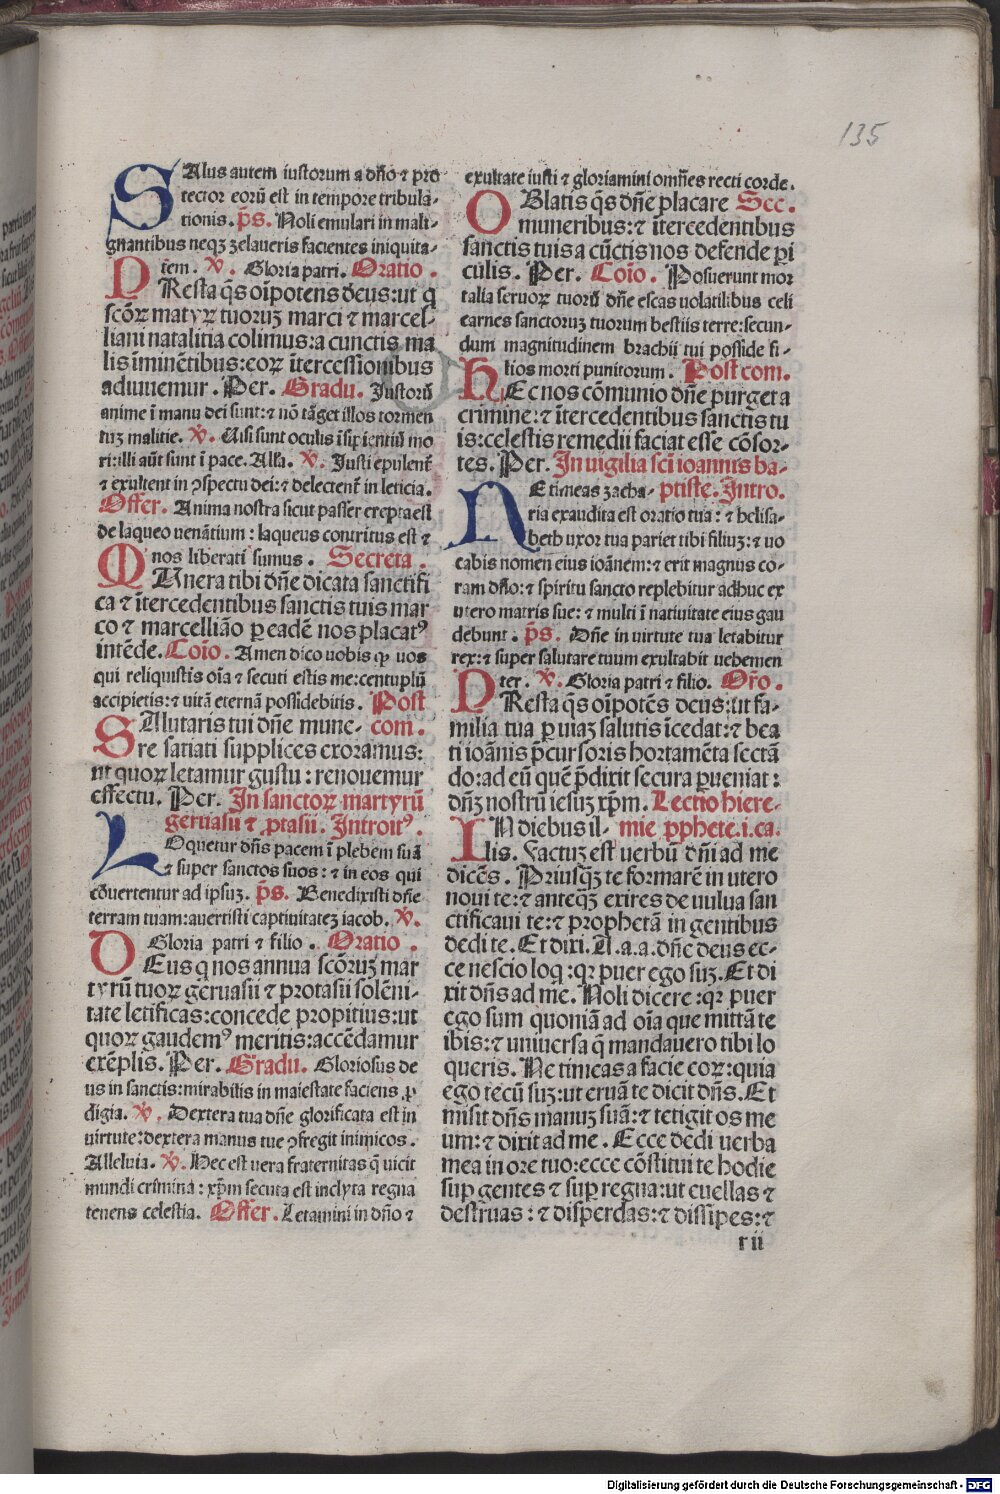 135
SAlus autem iustorum a dño ⁊ pro
tector eorũ est in tempore tribula-
tionis. ps. Noli emulari in mali-
gnantibus neqꝫ zelaueris facientes iniquita-
tem. ℣. Gloria patri. Oratio.
PResta q̃s oĩpotens deus: ut q
scõꝝ matyꝝ tuoruꝫ marci ⁊ marcel-
liani natalitia colimus: a cunctis ma
lis ĩminẽtibus: eoꝝ ĩtercessionibus
adiuuemur. Per. Gradu. Justorũ
anime ĩ manu dei sunt: ⁊ nõ tãget illos tormen
tuꝫ malitie. ℣. Uisi sunt oculis ĩsipientiũ mo
ri: illi aũt sunt ĩ pace. Alla. ℣. Justi epulent̃
⁊ exultent in ꝯspectu dei: ⁊ delectent̃ in leticia.
Offer. Anima nostra sicut passer erepta est
de laqueo uenãtium: laqueus contritus est ⁊
nos liberati sumus. Secreta.
MUnera tibi dñe dicata sanctifi
ca ⁊ ĩtercedentibus sanctis tuis mar
co ⁊ marcellião ꝑ eadẽ nos placatꝰ
intẽde. Coĩo. Amen dico uobis ꝙ uos
qui reliquistis oĩa ⁊ secuti estis me: centuplũ
accipietis: ⁊ uitã eternã possidebitis. Post
SAlutaris tui dñe mune- com.
re satiati supplices exoramus:
ut quoꝝ letamur gustu: renouemur
effectu. Per. In sanctoꝝ martyrũ
geruasii ⁊ ꝓtasii. Introitꝰ.
LOquetur dñs pacem ĩ plebem suã
⁊ super sanctos suos: ⁊ in eos qui
cõuertentur ad ipsuꝫ. ps. Benedixisti dñe
terram tuam: auertisti captiuitateꝫ iacob. ℣.
Gloria patri ⁊ filio. Oratio.
DEus q nos annua scõruꝫ mar
tyrũ tuoꝝ geruasii ⁊ protasii solẽni-
tate letificas: concede propitius: ut
quoꝝ gaudemꝰ meritis: accẽdamur
exẽplis. Per. Gradu. Gloriosus de
us in sanctis: mirabilis in maiestate faciens ꝓ
digia. ℣. Dextera tua dñe glorificata est in
uirtute: dextera manus tue ꝯfregit inimicos.
Alleluia. ℣. Hec est uera fraternitas q̃ uicit
mundi crimina: xp̃m secuta est inclyta regna
tenens celestia. Offer. Letamini in dño ⁊
exultate iusti ⁊ gloriamini omñes recti corde.
OBlatis q̃s dñe placare Sec.
muneribus: ⁊ ĩtercedentibus
sanctis tuis a cũctis nos defende pi
culis. Per. Coĩo. Posuerunt mor
talia seruoꝝ tuorũ dñe escas uolatilibus celi
carnes sanctoruꝫ tuorum bestiis terre: secun-
dum magnitudinem brachij tui posside fi-
lios morti punitorum. Post com.
HEc nos cõmunio dñe purget a
crimine: ⁊ ĩtercedentibus sanctis tu
is: celestis remedii faciat esse cõsor-
tes. Per. In uigilia scĩ ioannis ba-
NE timeas zacha- ptiste. Intro.
ria exaudita est oratio tua: ⁊ helisa-
beth uxor tua pariet tibi filiuꝫ: ⁊ uo
cabis nomen eius ioãnem: ⁊ erit magnus co-
ram dño: ⁊ spiritu sancto replebitur adhuc ex
utero matris sue: ⁊ multi ĩ natiuitate eius gau
debunt. ps. Dñe in uirtute tua letabitur
rex: ⁊ super salutare tuum exultabit uehemen
ter. ℣. Gloria patri ⁊ filio. Oro.
PResta q̃s oĩpotẽs deus: ut fa-
milia tua ꝑ uiaꝫ salutis ĩcedat: ⁊ bea
ti ioãnis p̃cursoris hortamẽta sectã
do: ad eũ quẽ p̃dixit secura ꝑueniat:
dñꝫ nostrũ iesuꝫ xp̃m. Lectio hiere-
IN diebus il- mie ꝓphete. i. ca.
lis. Factuꝫ est uerbũ dñi ad me
dicẽs. Priusqꝫ te formarẽ in utero
noui te: ⁊ anteqꝫ exires de uulua san
ctificaui te: ⁊ prophetã in gentibus
dedi te. Et dixi. A. a. a. dñe deus ec-
ce nescio loq: qꝛ puer ego suꝫ. Et di
xit dñs ad me. Noli dicere: qꝛ puer
ego sum quoniã ad oĩa que mittã te
ibis: ⁊ uniuersa q̃ mandauero tibi lo
queris. Ne timeas a facie eoꝝ: quia
ego tecũ suꝫ: ut eruã te dicit dñs. Et
misit dñs manuꝫ suã: ⁊ tetigit os me
um: ⁊ dixit ad me. Ecce dedi uerba
mea in ore tuo: ecce cõstitui te hodie
suꝑ gentes ⁊ suꝑ regna: ut euellas ⁊
destruas: ⁊ disperdas: ⁊ dissipes: ⁊
r ii
Digitalisierung gefördert durch die Deutsche Forschungsgemeinschaft - DFG